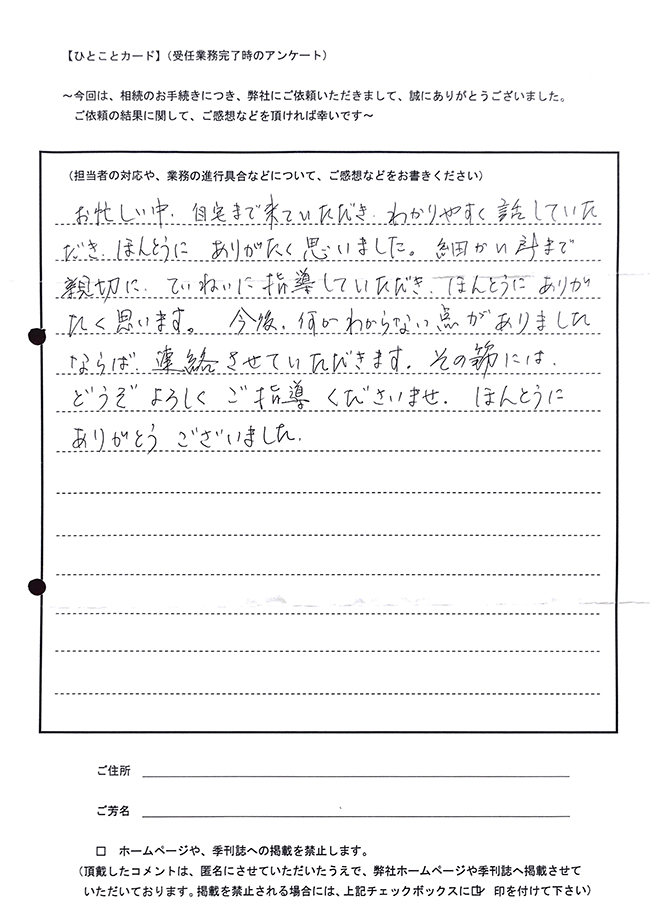 【ひとことカード】（受任業務完了時のアンケート）
～今回は、相続のお手続きにつき、弊社にご依頼いただきまして、誠にありがとうございました。
ご依頼の結果に関して、ご感想などを頂ければ幸いです～
（担当者の対応や、業務の進行具合などについて、ご感想などをお書きください）
お忙しい中、自宅まで来ていただき、わかりやすく話していた
だき、ほんとうに ありがたく思いました。細かい計まで
親切に、ていねいに指導していただき、ほんとうに ありが
たく思います。 今後、何かわからない点がありました
ならば、連絡させていただきます。その節には、
どうぞ よろしく ご指導 くださいませ。 ほんとうに
ありがとう ございました。
ご住所
ご芳名
□ ホームページや、季刊誌への掲載を禁止します。
（頂戴したコメントは、匿名にさせていただいたうえで、弊社ホームページや季刊誌へ掲載させて
いただいております。掲載を禁止される場合には、上記チェックボックスに☑ 印を付けて下さい）